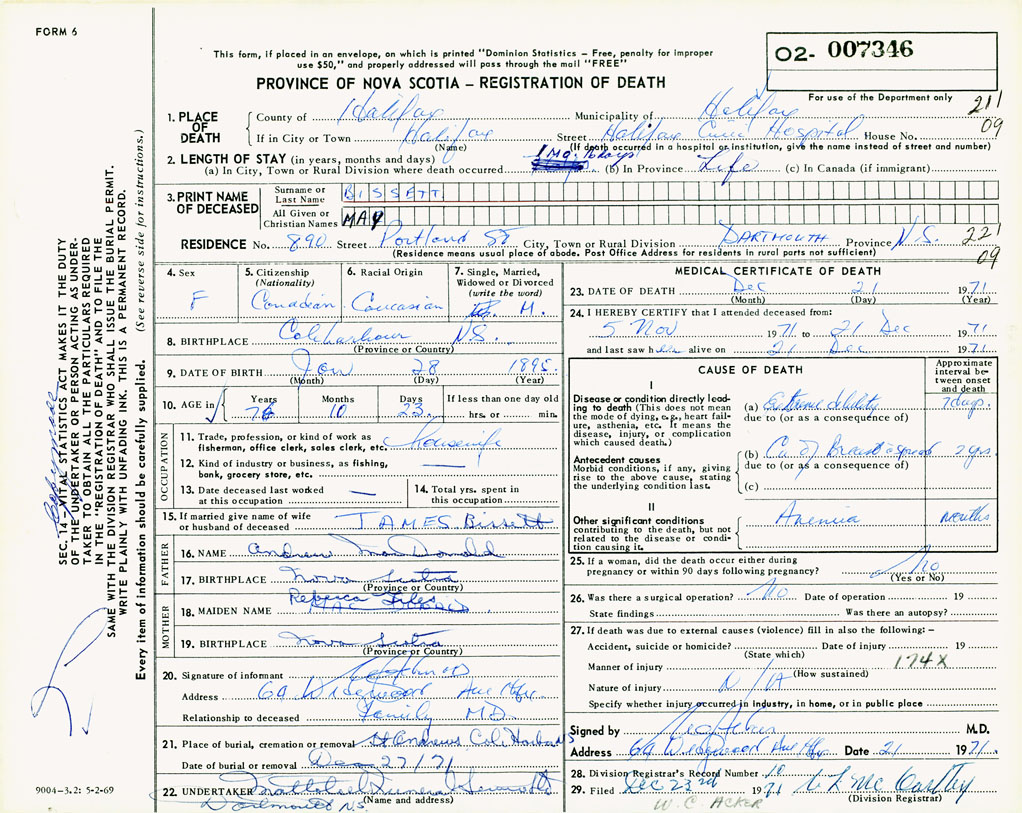 FORM 6
This form, if placed in an envelope, on which is printed "Dominion Statistics – Free, penalty for improper
use $50," and properly addressed will pass through the mail "FREE"
O2- 007346
PROVINCE OF NOVA SCOTIA – REGISTRATION OF DEATH
For use of the Department only
211
09
1. PLACE OF DEATH County of Halifax Municipality of Halifax
If in City or Town Halifax Street Halifax Civic Hospital House No.
(Name) (If death occurred in a hospital or institution, give the name instead of street and number)
2. LENGTH OF STAY (in years, months and days) 1 Mo. 16 days
(a) In City, Town or Rural Division where death occurred (b) In Province Life (c) In Canada (if immigrant)
3. PRINT NAME OF DECEASED Surname or Last Name BISSETT
All Given or Christian Names MAY
RESIDENCE No. 890 Street Portland St City, Town or Rural Division DARTMOUTH Province N.S. 221
09
(Residence means usual place of abode. Post Office Address for residents in rural parts not sufficient)
4. Sex F
5. Citizenship (Nationality) Canadian
6. Racial Origin Caucasian
7. Single, Married, Widowed or Divorced (write the word) M.
8. BIRTHPLACE Cole Harbour N.S.
(Province or Country)
9. DATE OF BIRTH Jan 28 1895
(Month) (Day) (Year)
10. AGE in Years 76 Months 10 Days 23 If less than one day old
hrs. or min.
OCCUPATION
11. Trade, profession, or kind of work as fisherman, office clerk, sales clerk, etc. housewife
12. Kind of industry or business, as fishing, bank, grocery store, etc. —
13. Date deceased last worked at this occupation —
14. Total yrs. spent in this occupation
15. If married give name of wife or husband of deceased JAMES Bissett
FATHER
16. NAME Andrew MacDonald
17. BIRTHPLACE Nova Scotia
(Province or Country)
MOTHER
18. MAIDEN NAME Rebecca Giles
19. BIRTHPLACE Nova Scotia
(Province or Country)
20. Signature of informant
Address 69 Wedgewood Ave Hfx
Relationship to deceased Family M.D.
21. Place of burial, cremation or removal St Andrews Cole Harbour NS
Date of burial or removal Dec 27/71
22. UNDERTAKER Funeral
(Name and address)
Dartmouth N.S.
MEDICAL CERTIFICATE OF DEATH
23. DATE OF DEATH Dec 21 1971
(Month) (Day) (Year)
24. I HEREBY CERTIFY that I attended deceased from:
5 Nov 1971 to 21 Dec 1971
and last saw her alive on 21 Dec 1971
CAUSE OF DEATH
Approximate interval between onset and death
I
Disease or condition directly leading to death (This does not mean the mode of dying, e.g., heart failure, asthenia, etc. It means the disease, injury, or complication which caused death.)
(a) Extreme debility 7 days.
due to (or as a consequence of)
Antecedent causes
Morbid conditions, if any, giving rise to the above cause, stating the underlying condition last.
(b) Ca of Breast c spread 2 yrs.
due to (or as a consequence of)
(c)
II
Other significant conditions contributing to the death, but not related to the disease or condition causing it.
Anemia months
25. If a woman, did the death occur either during pregnancy or within 90 days following pregnancy? No
(Yes or No)
26. Was there a surgical operation? No Date of operation 19
State findings Was there an autopsy?
27. If death was due to external causes (violence) fill in also the following: –
Accident, suicide or homicide? Date of injury 19
(State which) 174X
Manner of injury (How sustained)
Nature of injury N/A
Specify whether injury occurred in industry, in home, or in public place
Signed by M.D.
Address 69 Wedgewood Ave Hfx Date 21 1971.
28. Division Registrar's Record Number 10
29. Filed Dec 23rd 1971 McCarthy
(Division Registrar)
W. C. ACKER
SEC. 14 – VITAL STATISTICS ACT MAKES IT THE DUTY
OF THE UNDERTAKER OR PERSON ACTING AS UNDER-
TAKER TO OBTAIN ALL THE PARTICULARS REQUIRED
IN THE "REGISTRATION OF DEATH" AND TO FILE THE
SAME WITH THE DIVISION REGISTRAR WHO SHALL ISSUE THE BURIAL PERMIT.
WRITE PLAINLY WITH UNFADING INK. THIS IS A PERMANENT RECORD.
Every item of information should be carefully supplied. (See reverse side for instructions.)
9004-3.2: 5-2-69